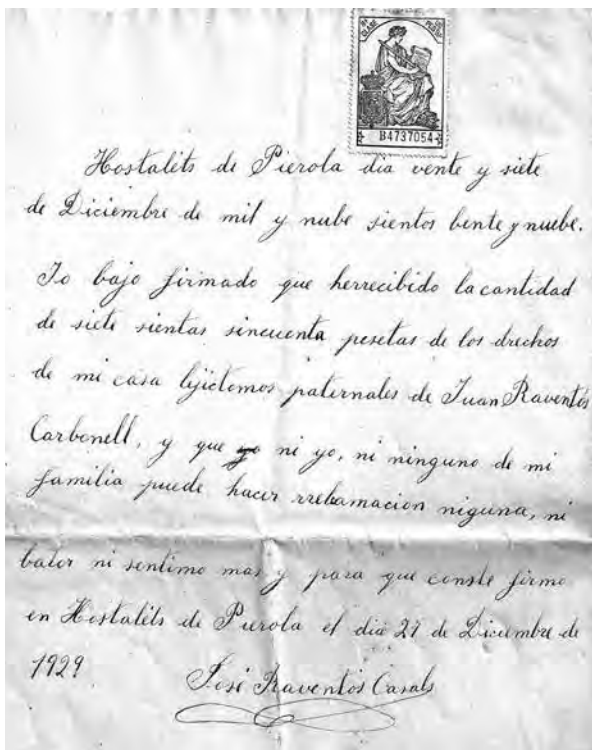 B4737054
Hostalets de Pierola dia vente y siete
de Diciembre de mil y nube sientos bente y nuebe.
Io bajo firmado que herrecibido la cantidad
de siete sientas sincuenta pesetas de los drechos
de mi casa lejictemos paternales de Juan Raventós
Carbonell, y que ni yo, ni ninguno de mi
familia puede hacer rreclamacion niguna, ni
balor ni sentimo mas y para que conste firmo
en Hostalets de Pierola el dia 27 de Diciembre de
1929
José Raventós Casals